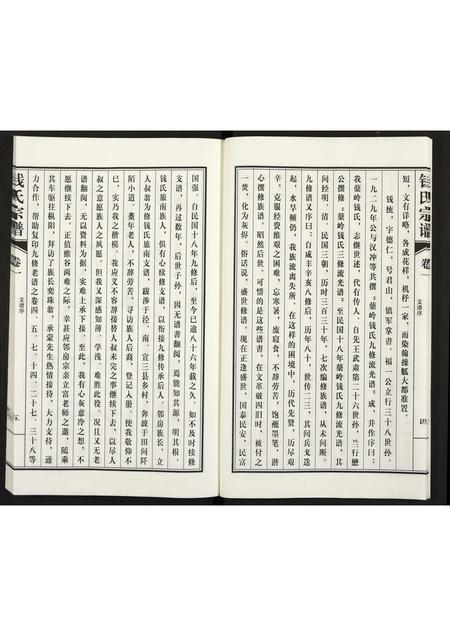 钱氏宗谱
卷
支谱序
四
短，文有详略，各成花样，机杼一家，而染翰操觚大都准置。
钱统，字德仁，号君山，镇军掌书，福一公立行三十八世孙。
一九二九年公与汉冲等共撰《蔡岭钱氏九修流光谱》成，并作序曰：
我蔡岭钱氏，志继世述，代有传人，自先王武肃第二十六世孙，兰行懋
公撰修《蔡岭钱氏三修流光谱》，至民国十八年蔡岭钱氏九修流光谱，其
问经明、清、民国三朝，历时三百三十年，七次编修族谱，从未间断。
九修谱又序曰：自咸丰辛亥八修后，历年八十，世传二三，其间兵戈迭
起，水旱频仍，我族流离失所。在这样的困境中，历代先贤，历尽艰
辛，克服经费维艰之困难，忘寒暑，废寝食，不辞劳苦，饱蘸墨笔，潜
心撰修族谱，昭然后世。可惜的是这些谱书，在文革破四旧时，被付之
一焚，化为灰烬。俗话说，盛世修谱。现在正逢盛世，国泰民安，民富
国强。自民国十八年九修后，至今已逾八十六年载之久，如不及时续修
支谱，再过数年，后世子孙，因无谱书翻阅，焉能知其源，明其根。
钱氏旅南族人，俱有心续修支谱，以衔接九修传承后人。邻房族长立
人叔翁为修钱氏旅南支谱，跋涉于泾、南、宣三县乡村，奔波于田间阡
陌小道，耄年老人，不辞劳苦，寻访族人后裔，登记入册，使我敬仰不
已，实乃我之楷模。我应义不容辞接替人叔未完之事继续下去，以尽人
叔之意愿族人之夙愿。但我又深感知薄，学浅，难胜此役，况且又无老
谱翻阅，无以资料为据，实难上承下接。至此，我有心灰意冷之想，不
愿继续下去。正值维谷两难之际，幸甚应邻房宗亲立富老师之邀，随乘
其车驱往枞阳，拜访了族长奕珠翁，承蒙先生热情接待，大力支持，通
力合作，帮助复印九修老谱之卷四、五、七、二十四、二十七、三十八等
钱氏宗谱
卷
支谱序
五